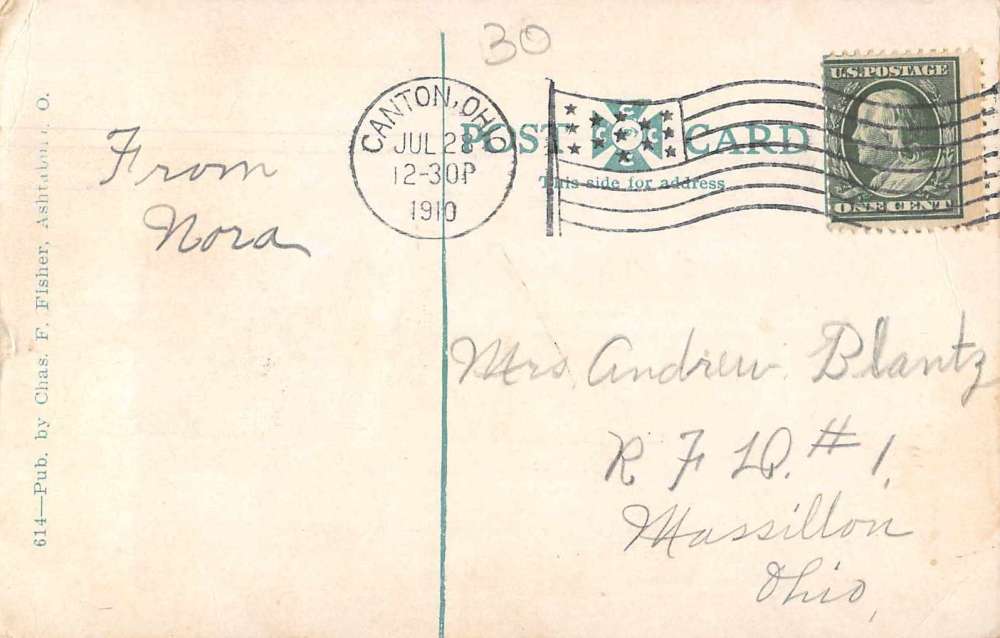 30
CANTON, OHIO
JUL 28
12-30P
1910
POST CARD
This side for address
U.S. POSTAGE
ONE CENT
From
Nora
Mrs. Andrew Blantz
R F D. # 1.
Massillon
Ohio,
614—Pub. by Chas. F. Fisher, Ashtabula, O.